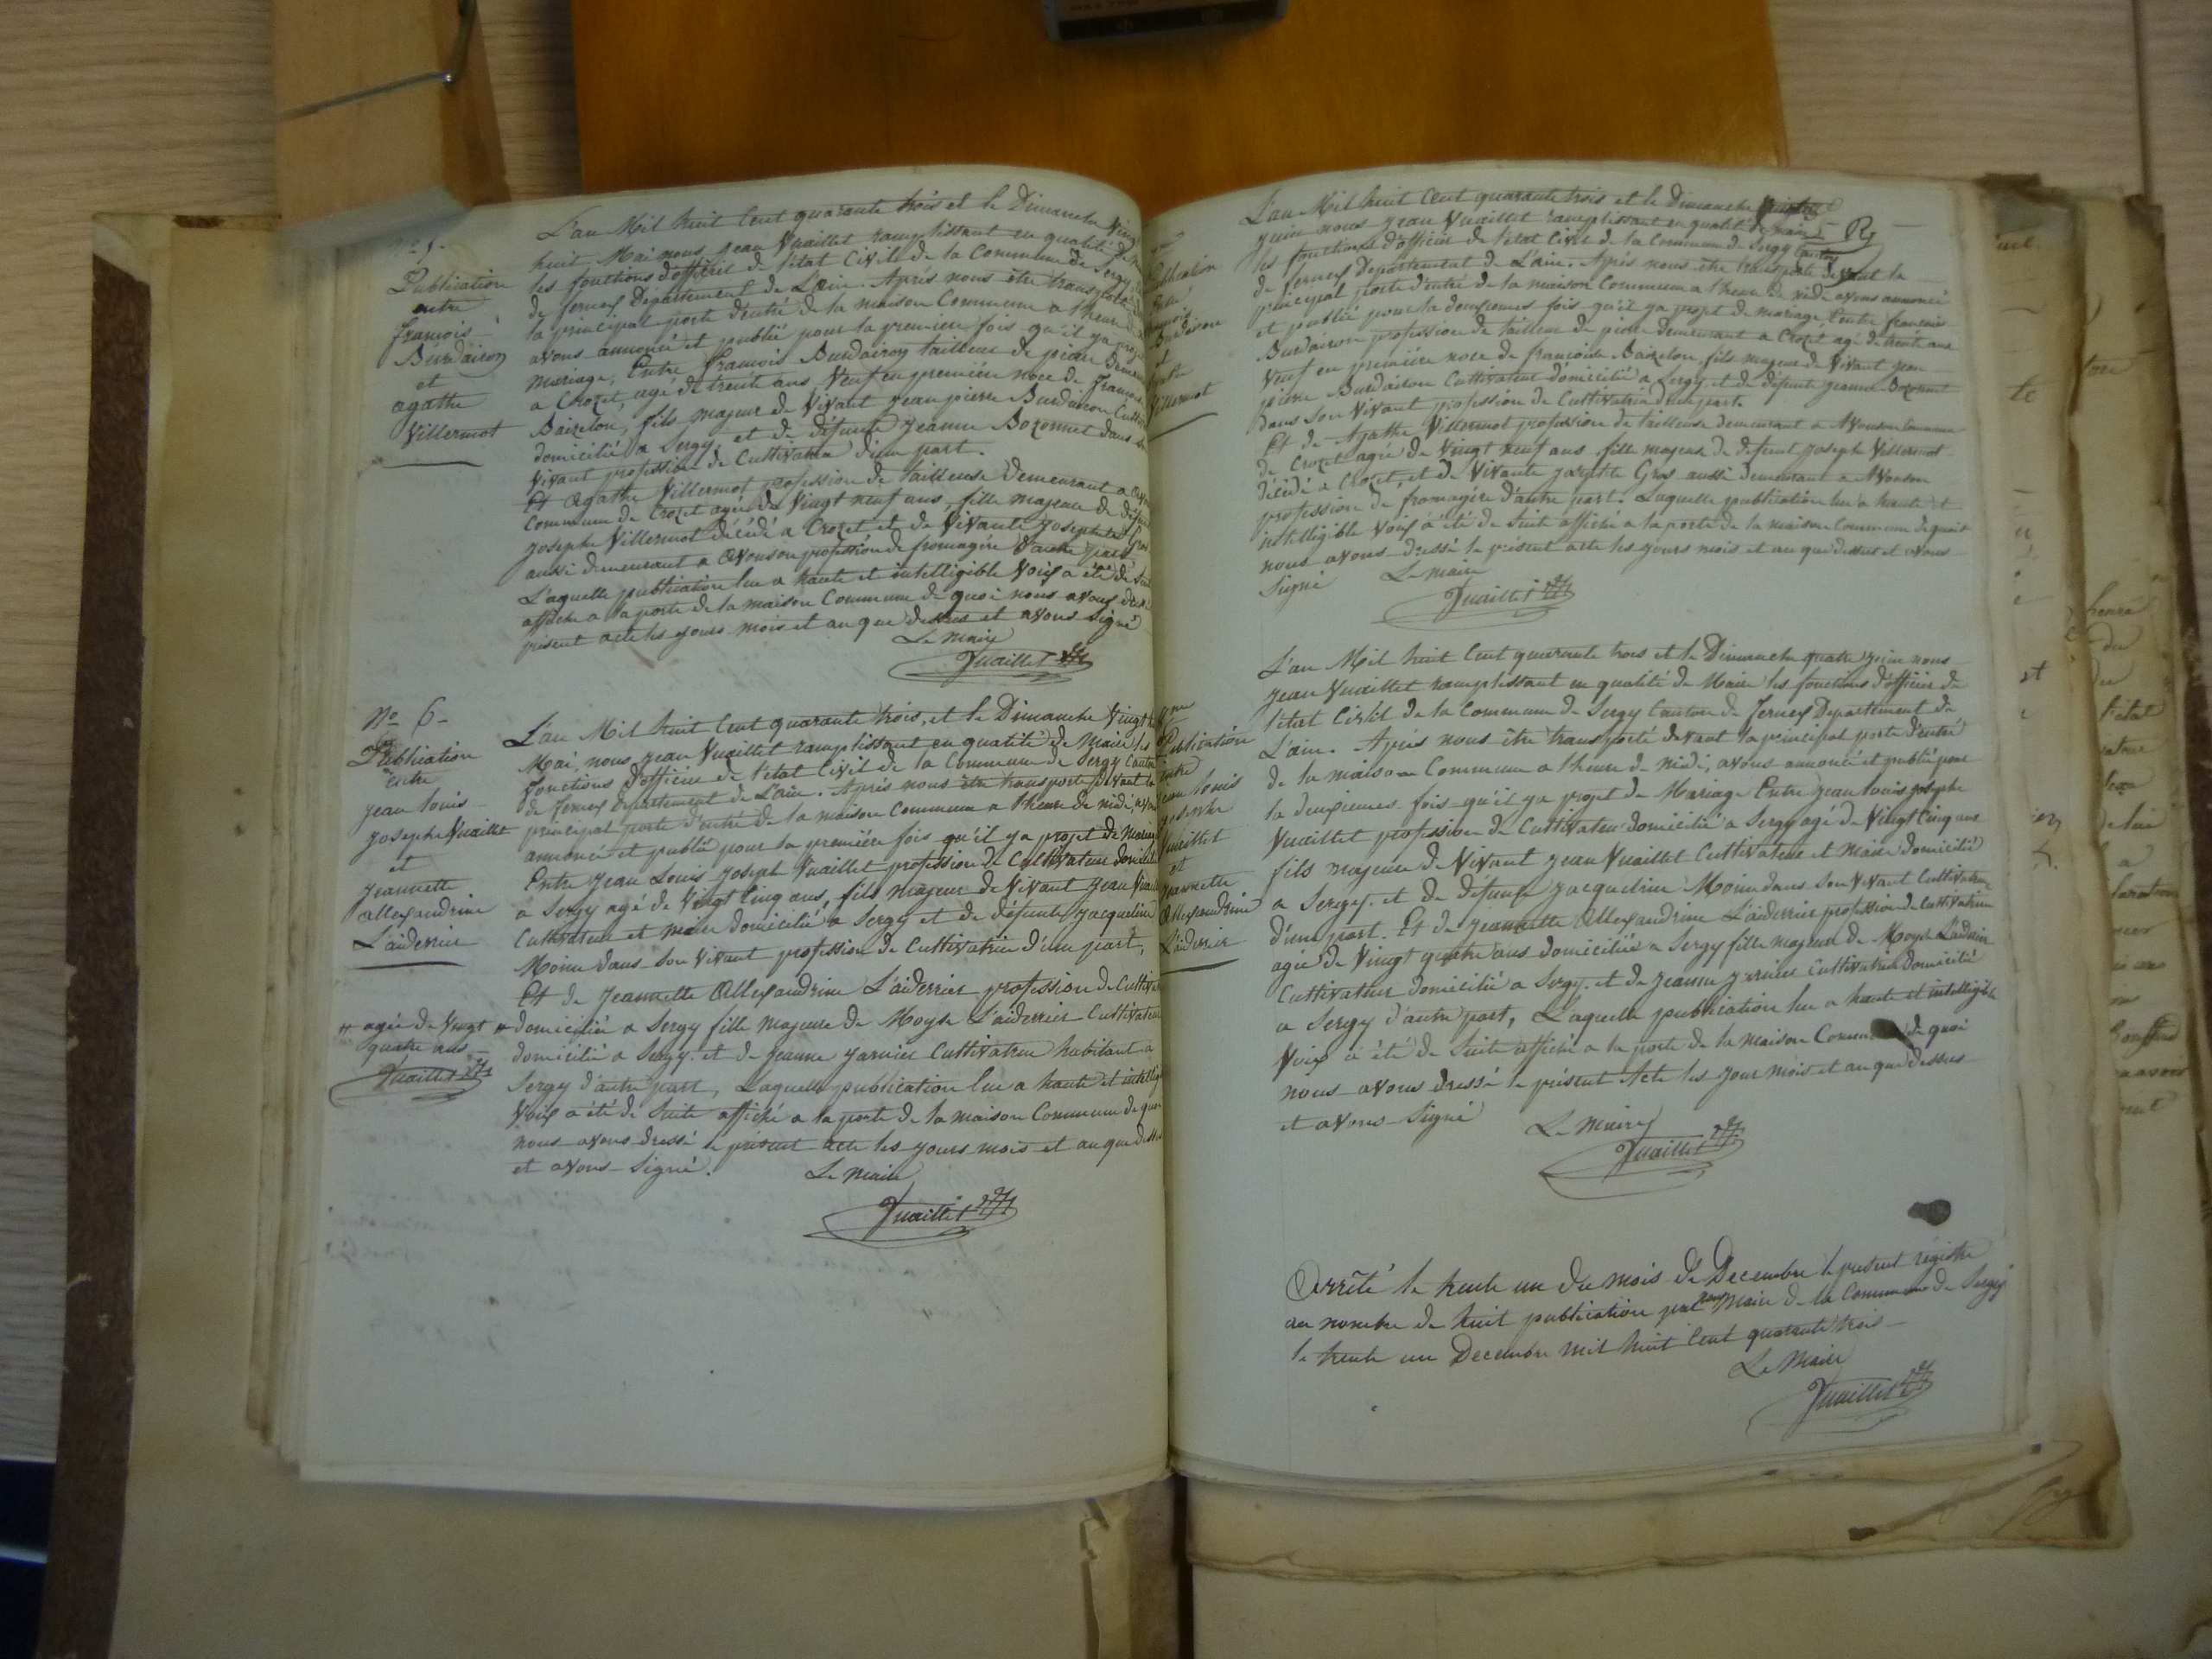 Nº 5.
Publication
entre
françois
Burdairon
et
agathe
Villermot
L'an Mil huit Cent quarante trois et le Dimanche Vingt
huit Mai nous Jean Vuaillet ramplissant en qualité de
les fonctions d'officié de l'état Civile de la Commune de Sergy
de ferney Département de L'ain. Après nous être transporté
la principal porte d'entré de la maison Commune a l'heure de
avons annoncé et publié pour la premiere fois qu'il ya projet
mariage, Entre françois Burdairon tailleur de pierre demeurant
a Crozet, agé de trente ans Veuf en premiere noce de françoise
Baizelon, fils majeur de Vivant Jean pierre Burdairon Cultiv
domicilié a Sergy, et de défunte Jeanne Bozonnet dans son
Vivant profession de Cultivatrice d'une part.
Et Agathe Villermot profession de tailleuse demeurant a Avouson
Commune de Crozet agée de Vingt neuf ans, fille majeure de défunt
Joseph Villermot décédé a Crozet et de Vivante Josephte Gros
aussi demeurant a Avouson profession de fromagère d'autre part
L'aquelle publication lue a haute et intelligible Voix a été de Suite
affiché a la porte de la maison Commune de quoi nous avons dressé
présent acte les jours mois et an que dessus et avons signé
Le Maire
Vuaillet
Nº 6-
Publication
entre
Jean louis
Joseph Vuaillet
et
Jeannette
allexandrine
L'aiderrier
L'an Mil huit Cent quarante trois, et le Dimanche Vingt h
Mai, nous Jean Vuaillet ramplissant en qualité de Maire les
fonctions d'officier de l'état Civil de la Commune de Sergy Canton
de ferney département de L'ain. Après nous être transporté devant la
principal porte d'entré de la maison Commune a l'heure de midi, avons
annoncé et publié pour la première fois qu'il ya projet de mariage
Entre Jean Louis Joseph Vuaillet profession de Cultivateur domicilié
a Sergy agé de Vingt Cinq ans, fils majeur de Vivant Jean Vuaillet
Cultivateur et maire domicilié a Sergy et de défunte Jacqueline
Moine dans son Vivant profession de Cultivatrice d'une part,
Et de Jeannette Allexandrine L'aiderrier profession de Cultiva
# agée de Vingt
quatre ans
Vuaillet
# domiciliée a Sergy fille majeure de Moyse L'aiderrier Cultivateur
domicilié a Sergy. et de Jeanne Jarnier Cultivatrice habitant a
Sergy d'autre part, Laquelle publication lue a haute et intellig
Voix a été de Suite affiché a la porte de la maison Commune de quoi
nous avons dressé le présent acte les jours mois et an que dessus
et avons signé.
Le Maire
Vuaillet
Publication
Entre
françois
Burdairon
et
Agathe
Villermot
L'an Mil huit Cent quarante trois et le Dimanche
Juin nous Jean Vuaillet ramplissant en qualité de maire
les fonctions d'officier de l'état Civil de la Commune de Sergy Canton
de ferney département de L'ain. Après nous être transporté devant la
principal porte d'entré de la maison Commune a l'heure de midi avons annoncé
et publié pour la deuxiemes fois qu'il ya projet de mariage Entre françois
Burdairon profession de tailleur de pierre demeurant a Crozet agé de trente ans
Veuf en premiere noce de françoise Baizelon, fils majeur de Vivant Jean
pierre Burdairon Cultivateur domicilié a Sergy et de défunte Jeanne Bozonnet
dans son Vivant profession de Cultivatrice d'une part.
Et de Agathe Villermot profession de tailleuse demeurant a Avouson Commune
de Crozet agée de Vingt neuf ans fille majeure de défunt Joseph Villermot
décédé a Crozet, et de Vivante Josephte Gros aussi demeurant a Avouson
profession de fromagère d'autre part. Laquelle publication lue a haute et
intelligible Voix a été de Suite affiché a la porte de la maison Commune de quoi
nous avons dressé le présent acte les jours mois et an que dessus et avons
Signé
Le Maire
Vuaillet
Publication
entre
Jean louis
Joseph
Vuaillet
et
Jeannette
Allexandrine
L'aiderrier
L'an Mil huit Cent quarante trois et le Dimanche quatre Juin nous
Jean Vuaillet ramplissant en qualité de Maire les fonctions d'officier de
l'état Civil de la Commune de Sergy Canton de Ferney Département de
L'ain. Après nous être transporté devant la principal porte d'entré
de la maison Commune a l'heure de midi, avons annoncé et publié pour
la deuxiemes fois qu'il ya projet de Mariage Entre Jean louis Joseph
Vuaillet profession de Cultivateur domicilié a Sergy agé de Vingt Cinq ans
fils majeur de Vivant Jean Vuaillet Cultivateur et Maire domicilié
a Sergy. et de défunte Jacqueline Moine dans son Vivant Cultivatrice
d'une part. Et de Jeannette Allexandrine L'aiderrier profession de Cultivatrice
agée de Vingt quatre ans domiciliée a Sergy fille majeure de Moyse L'aiderrier
Cultivateur domicilié a Sergy. et de Jeanne Jarnier Cultivatrice domicilié
a Sergy d'autre part, L'aquelle publication lue a haute et intelligible
Voix a été de Suite affiché a la porte de la maison Commune de quoi
nous avons dressé le présent Acte les jour mois et an que dessus
et avons Signé
Le Maire
Vuaillet
Arrêté le trente un du mois de Decembre le present registre
au nombre de huit publication par nous Maire de la Commune de Sergy
le trente un Decembre mil huit Cent quarante trois
Le Maire
Vuaillet